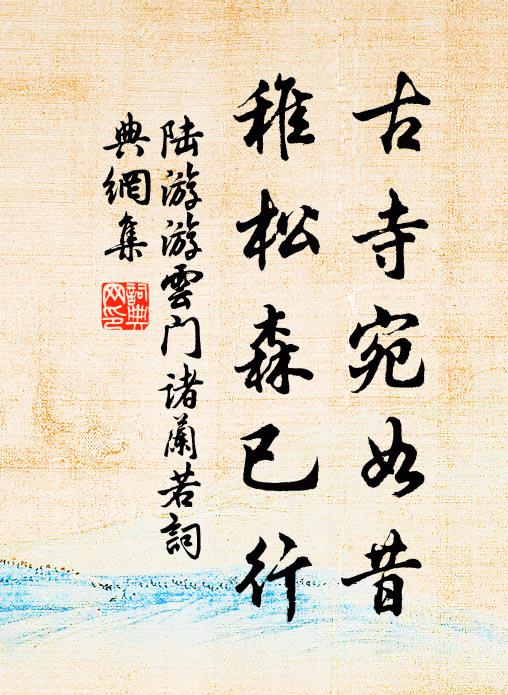 古寺宛如昔
稚松森已行
陆游游雲门诸蘭若詞
典網集
詞典网印